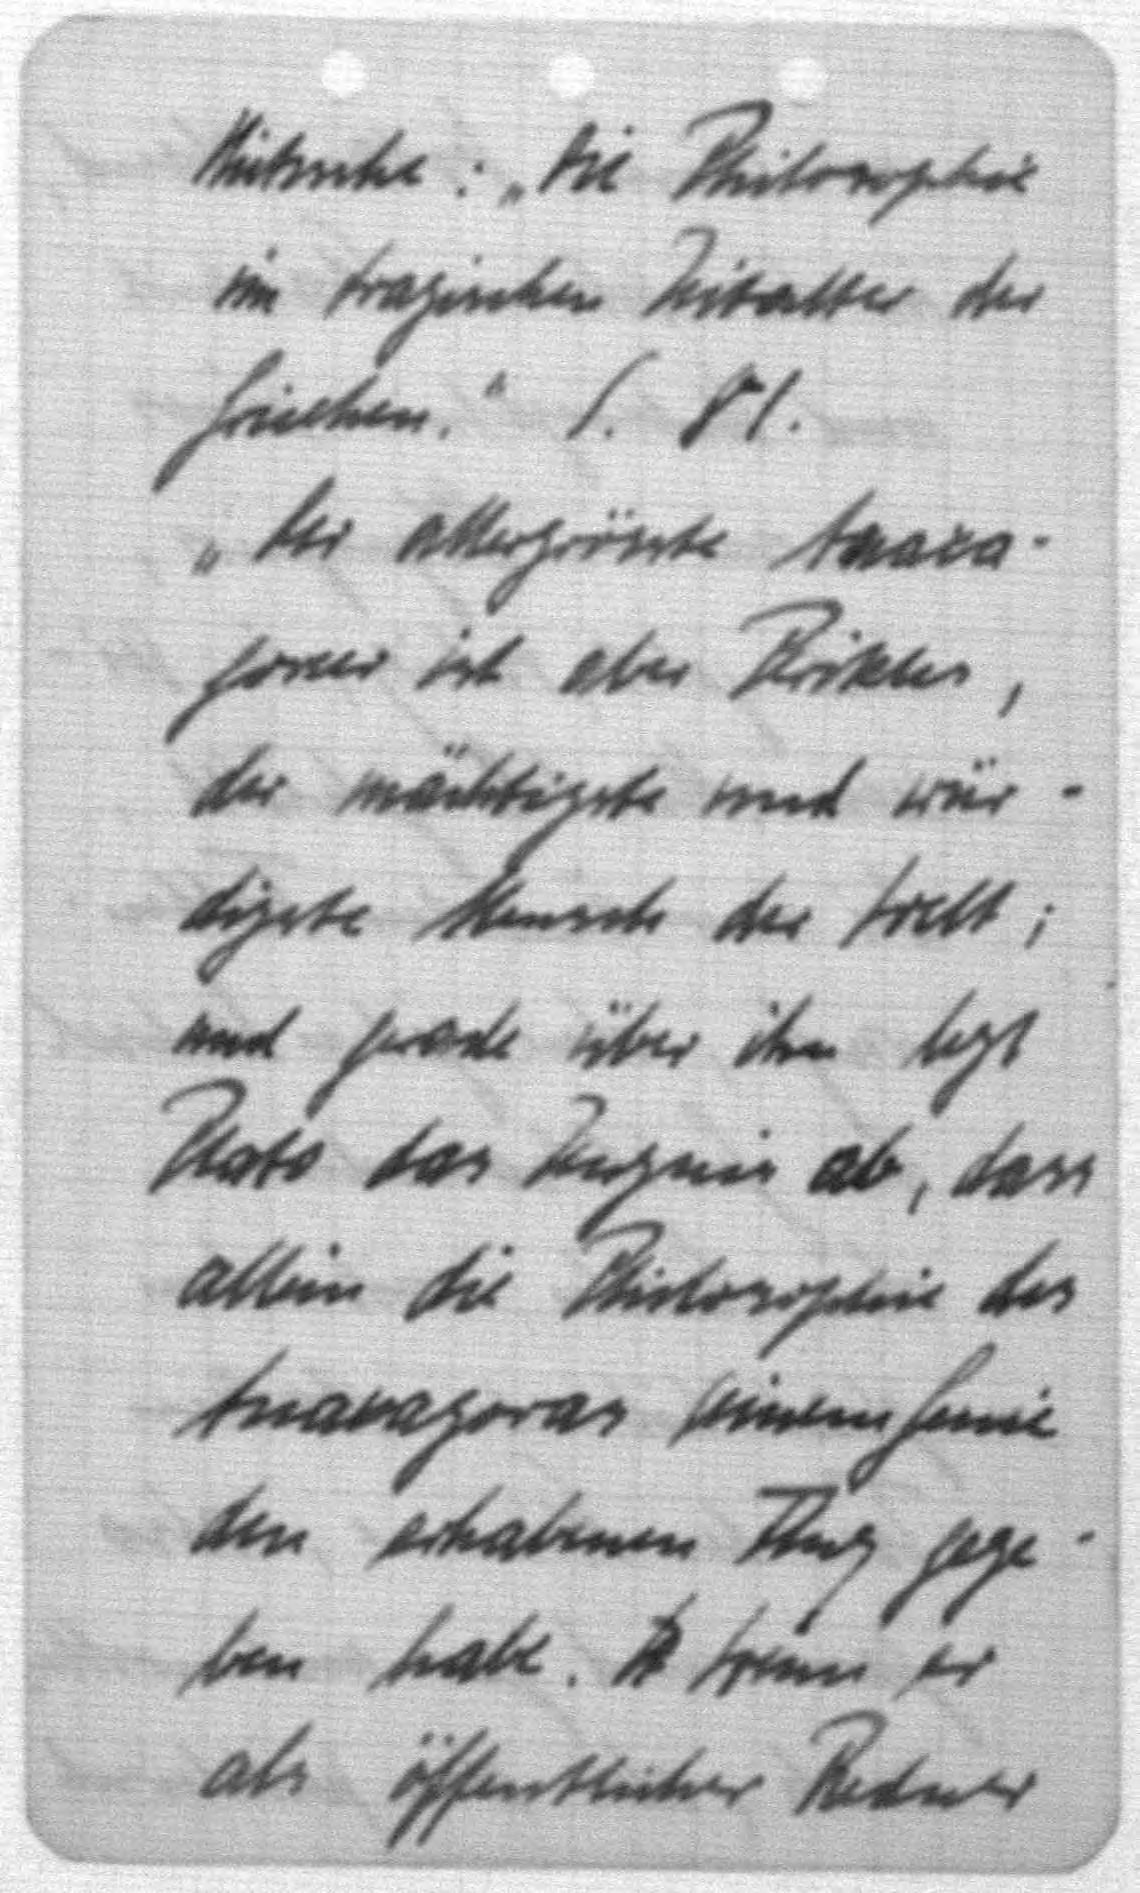 Nietzsche: „Die Philosophie
im tragischen Zeitalter der
Griechen." S. 81.
„Der allergrösste Anaxa-
goreer ist aber Perikles,
der mächtigste und wür-
digste Mensch der Welt;
und grade über ihn legt
Plato das Zeugnis ab, dass
allein die Philosophie des
Anaxagoras seinem Genie
den erhabenen Flug gege-
ben habe. Wenn er
als öffentlicher Redner